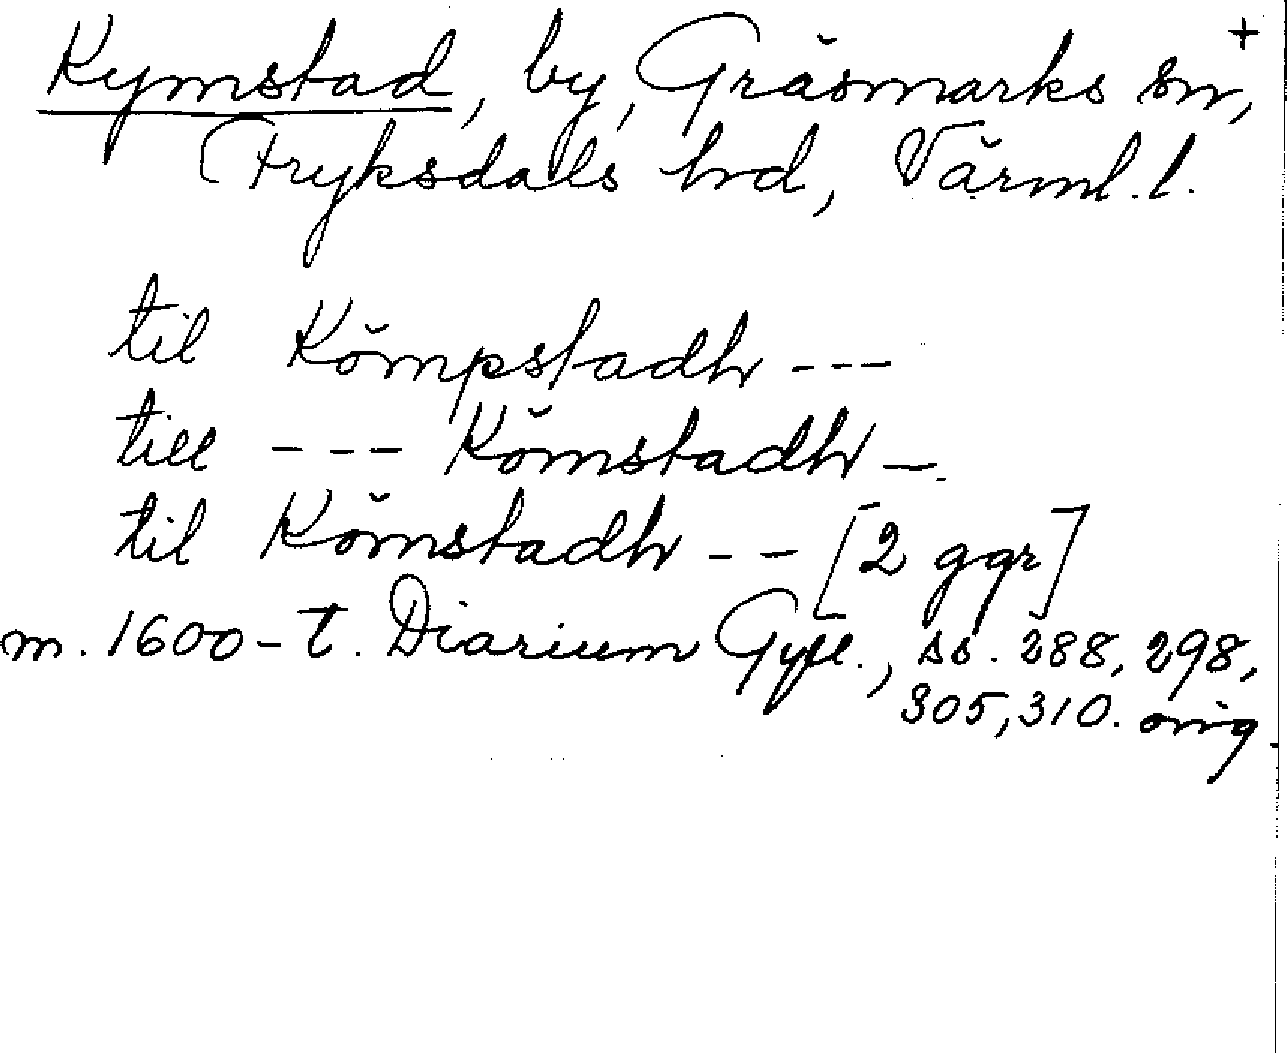 +
Kymstad, by, Gräsmarks sn,
Fryksdals hrd, Värml. l.
til Kömpstadh ---
till --- Kömstadh —.
til Kömstadh -- [2 ggr]
m. 1600-t. Diarium Gyll., ss. 288, 298,
305, 310. orig.